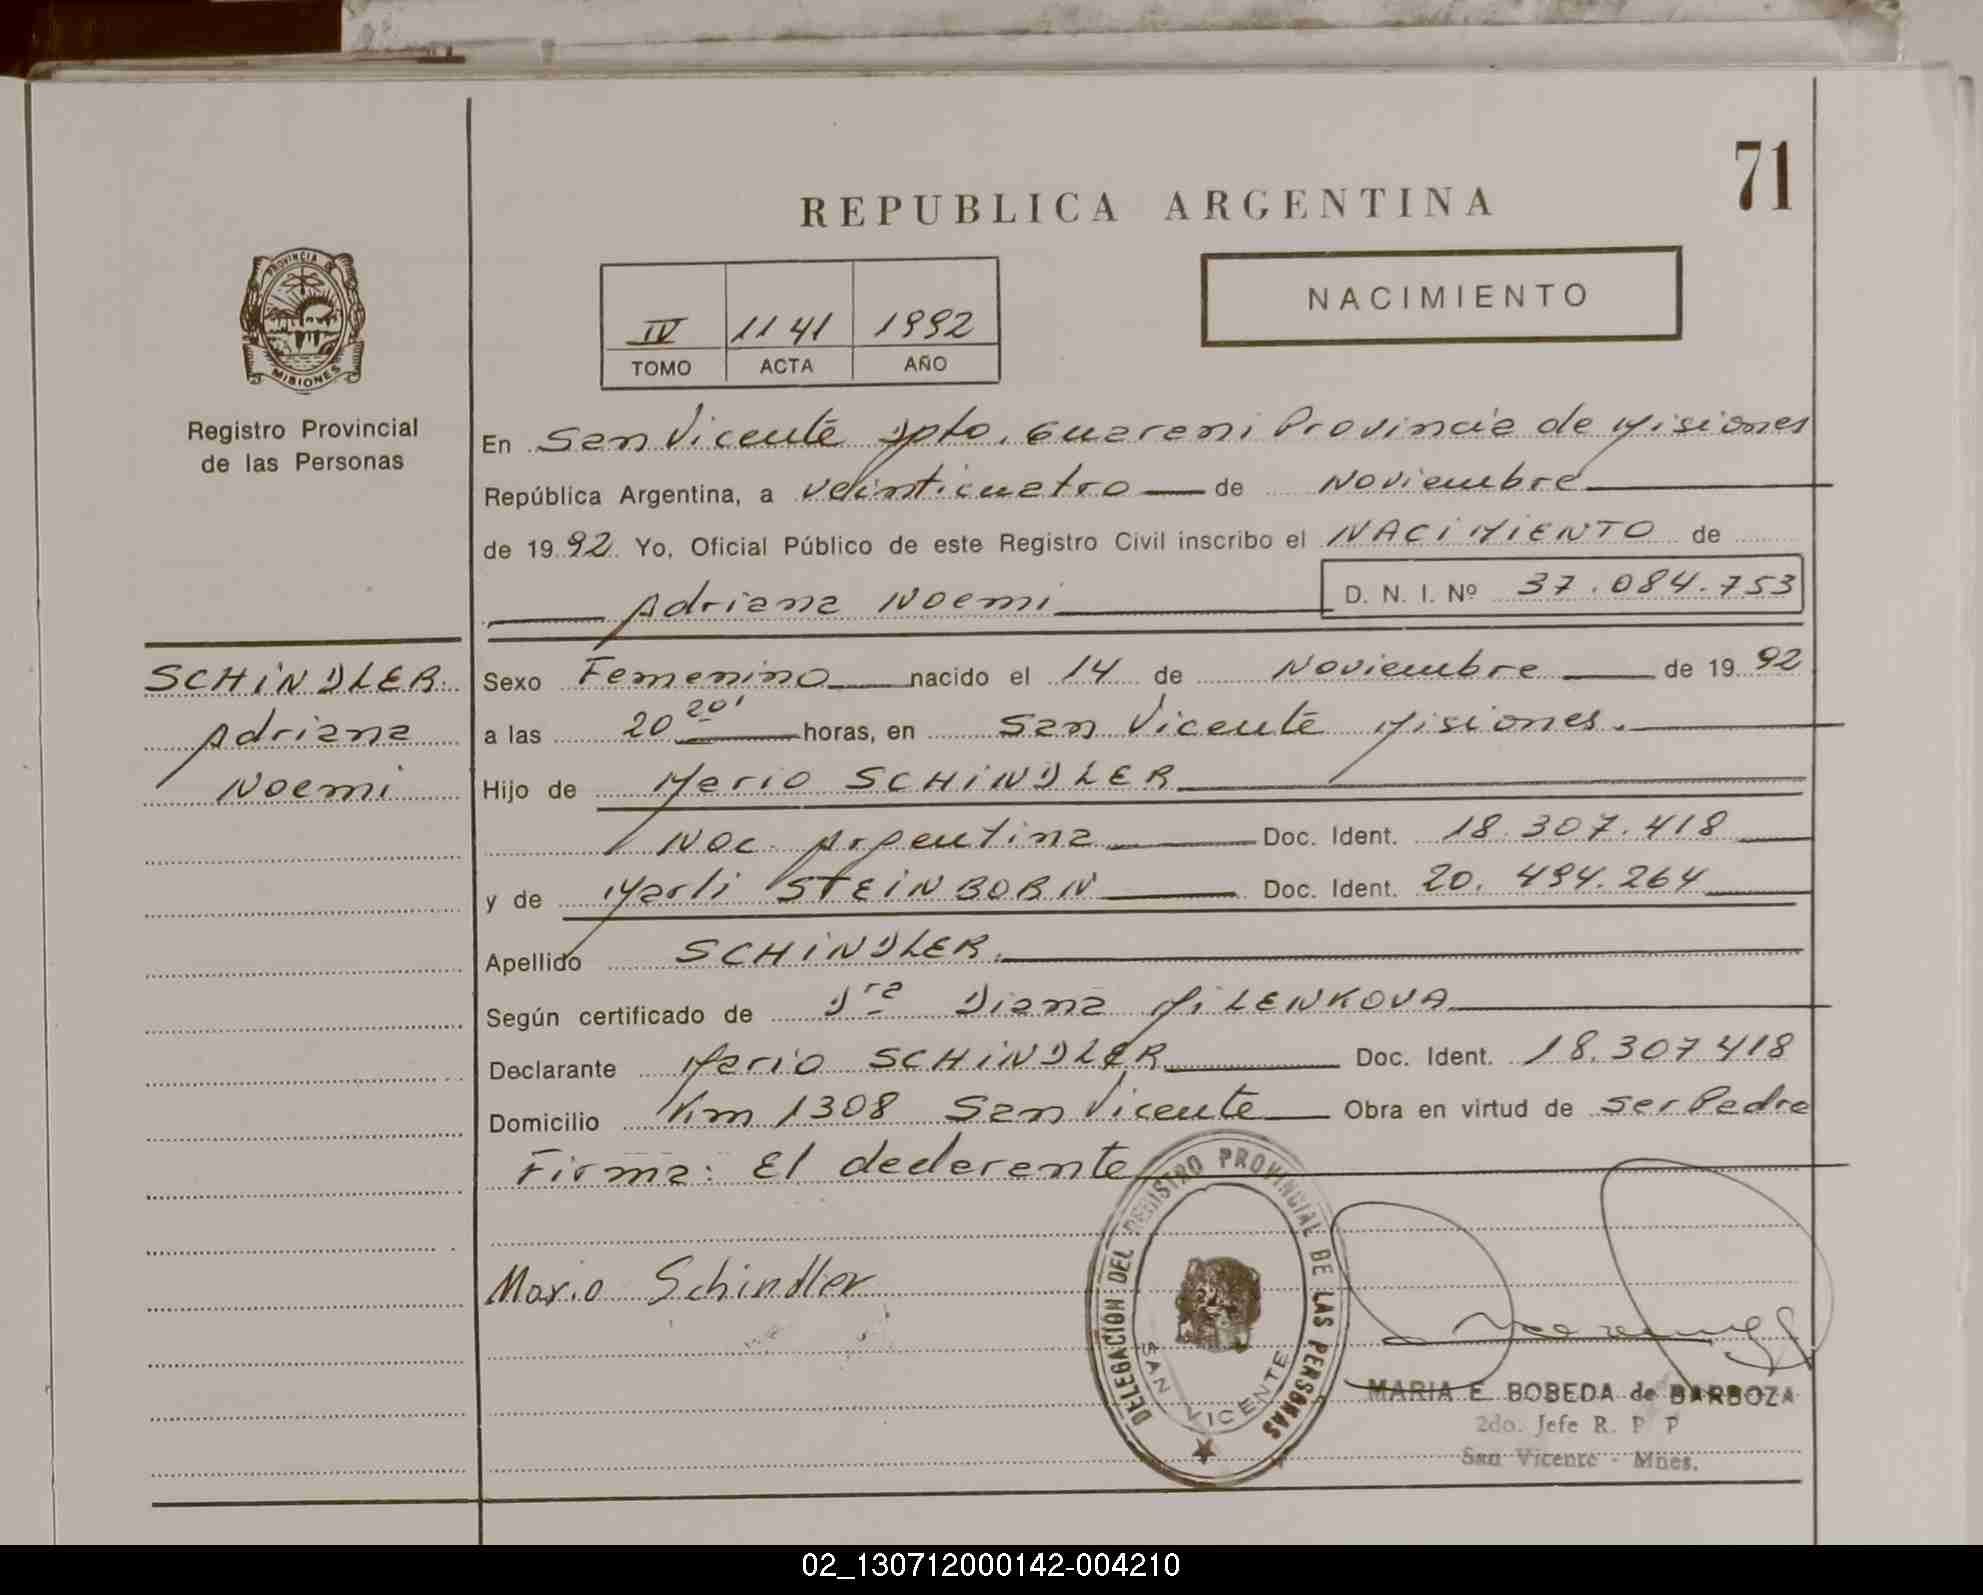 71
REPUBLICA ARGENTINA
PROVINCIA DE
MISIONES
Registro Provincial
de las Personas
IV 1141 1992
TOMO ACTA AÑO
NACIMIENTO
En San Vicente Dpto. Guarani Provincia de Misiones
República Argentina, a veinticuatro de Noviembre
de 1992 Yo, Oficial Público de este Registro Civil inscribo el NACIMIENTO de
Adriana Noemi D. N. I. Nº 37.084.753
SCHINDLER
Adriana
Noemi
Sexo Femenino nacido el 14 de Noviembre de 1992
a las 20 20' horas, en San Vicente Misiones.
Hijo de Mario SCHINDLER
Nac. Argentina Doc. Ident. 18.307.418
y de Marli STEINBORN Doc. Ident. 20.494.264
Apellido SCHINDLER.
Según certificado de Dra Diana MILENKOVA
Declarante Mario SCHINDLER Doc. Ident. 18.307.418
Domicilio Km 1308 San Vicente Obra en virtud de ser Padre
Firma: El declarante
Mario Schindler
DELEGACION DEL REGISTRO PROVINCIAL DE LAS PERSONAS
SAN VICENTE
MARIA E. BOBEDA de BARBOZA
2do. Jefe R. P. P
San Vicente - Mnes.
02_130712000142-004210